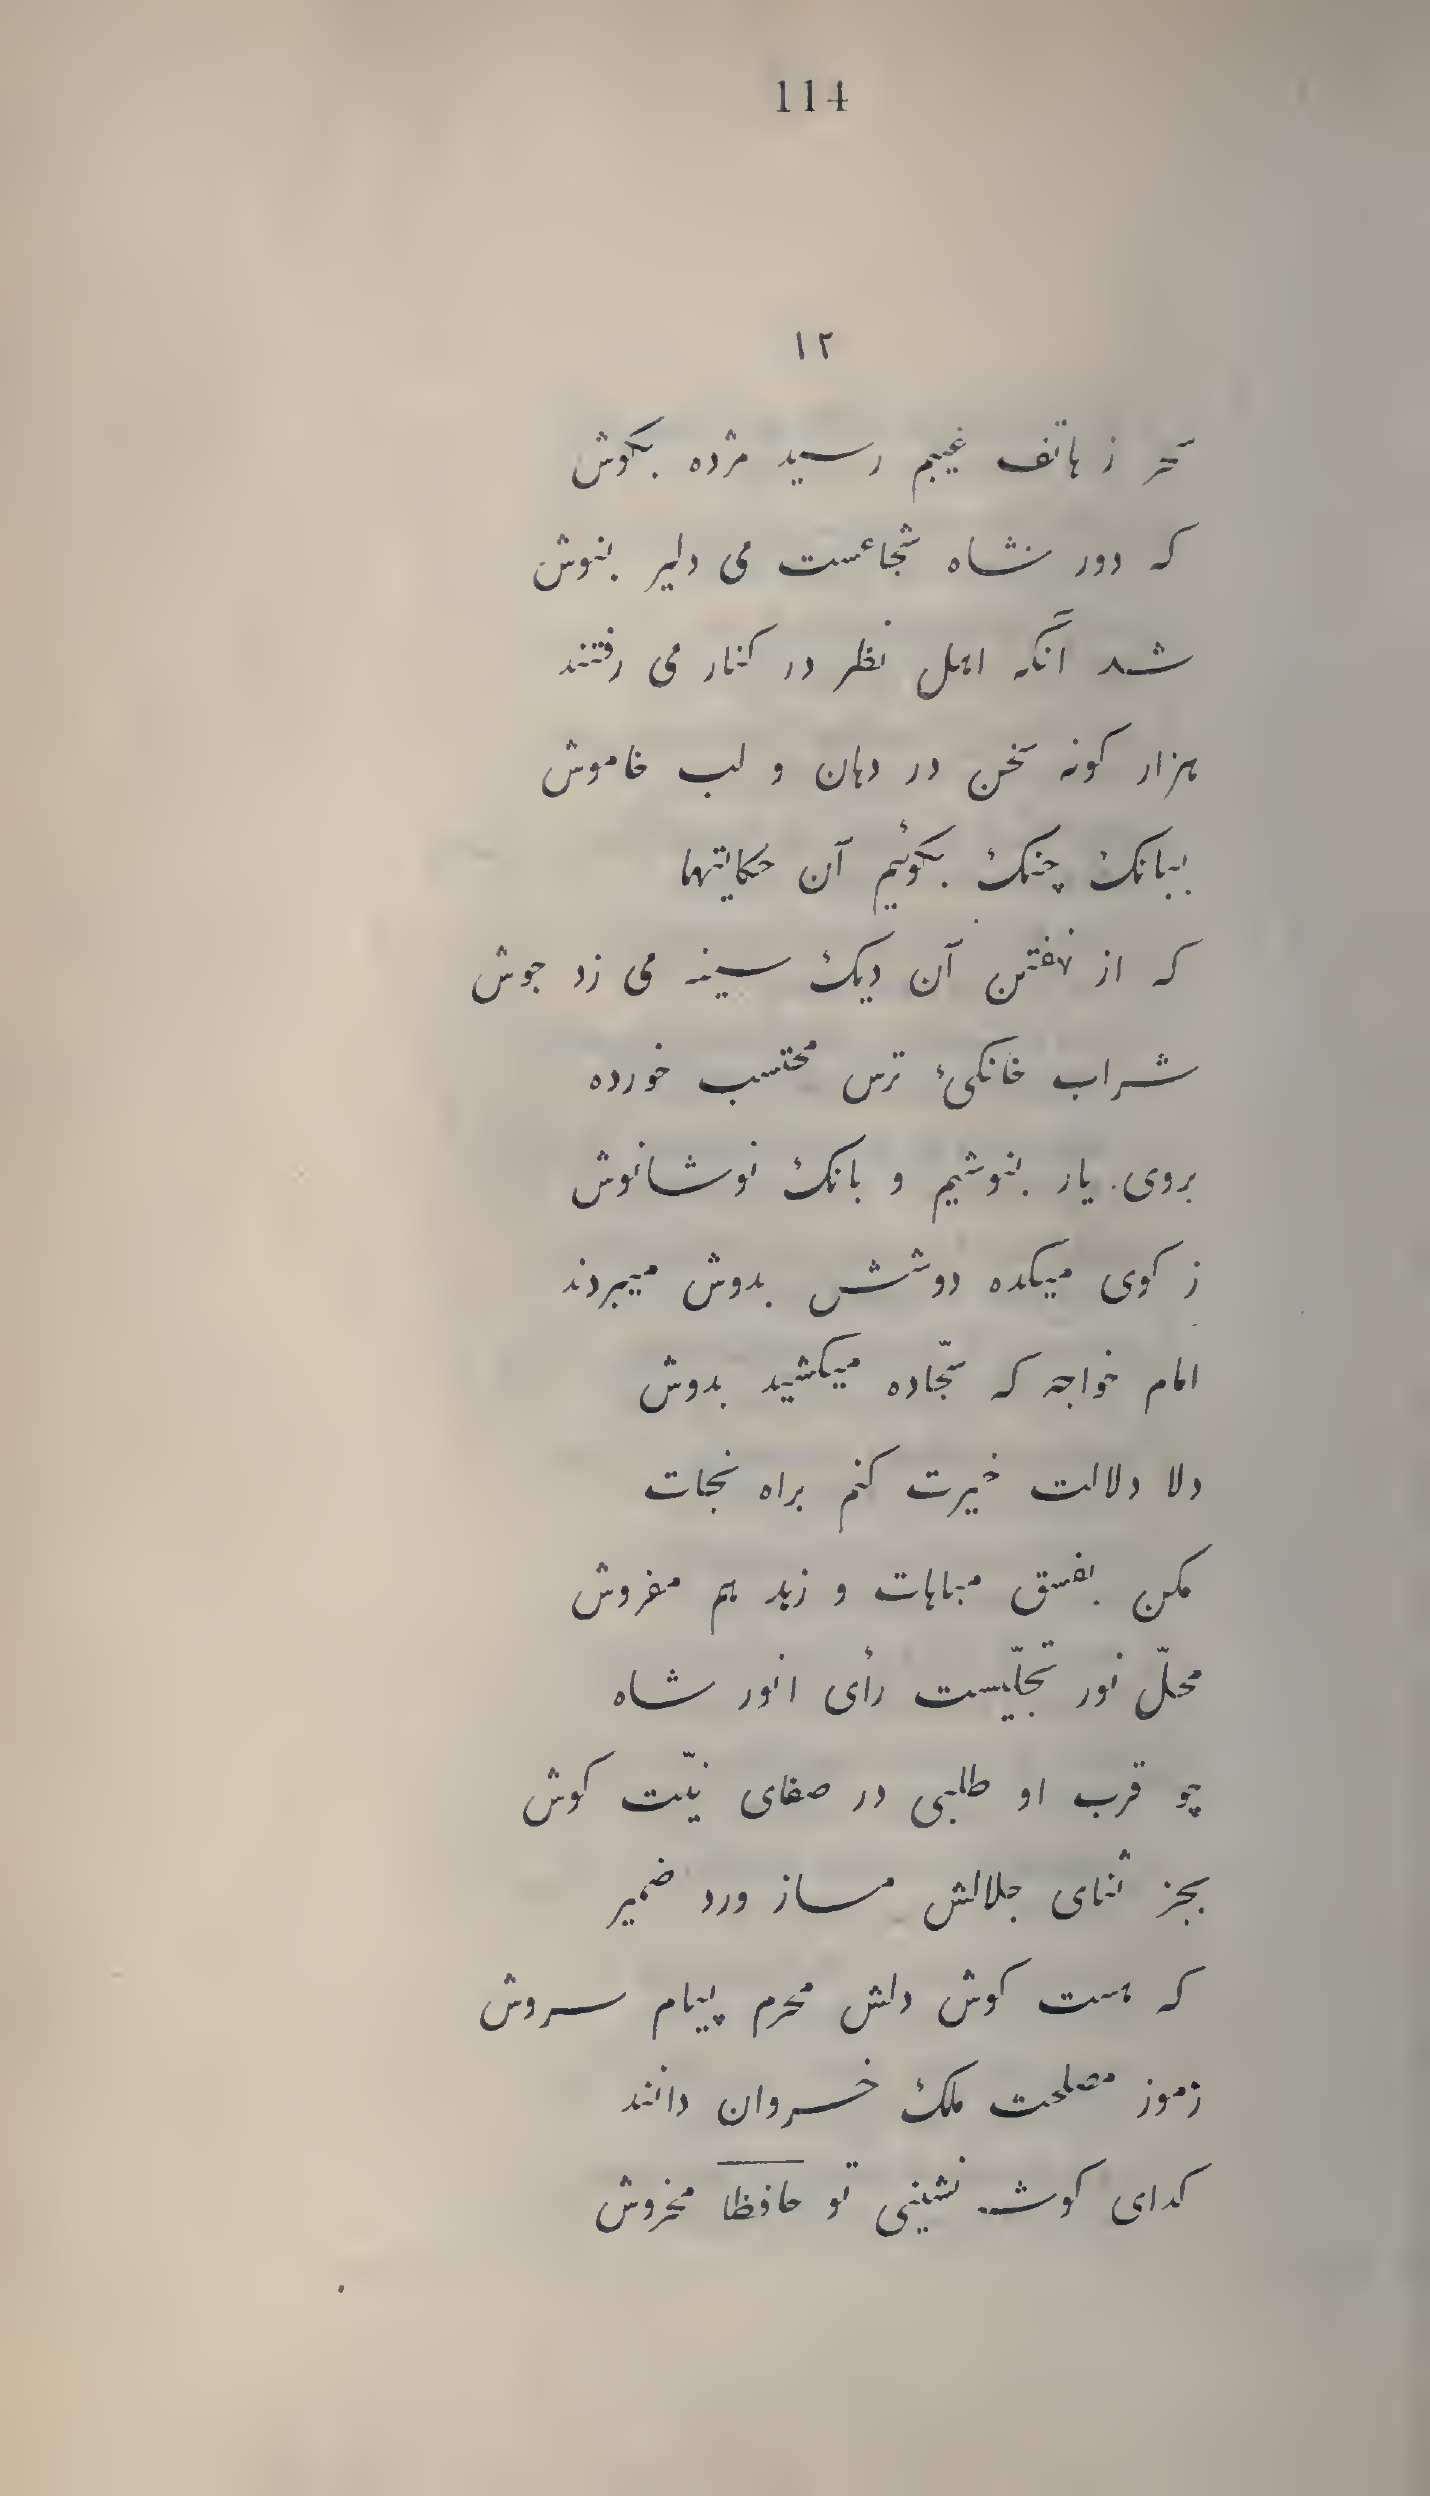 114
١٢
سحر ز هاتف غیبم رسید مژده بکوش
که دور شاه شجاعست می دلیر بنوش
شد آنکه اهل نظر در کنار می رفتند
هزار کونه سخن در دهان و لب خاموش
ببانک چنک بکوئیم آن حکایتها
که از نهفتن آن دیک سینه می زد جوش
شراب خانکئ ترس محتسب خورده
بروی یار بنوشیم و بانک نوشانوش
ز کوی میکده دوشش بدوش میبردند
امام خواجه که سجّاده میکشید بدوش
دلا دلالت خیرت کنم براه نجات
مکن بفسق مباهات و زهد هم مفروش
محلّ نور تجلّیست رأی انور شاه
چو قرب او طلبی در صفای نیّت کوش
بجز ثنای جلالش مساز ورد ضمیر
که هست کوش دلش محرم پیام سروش
زموز مصلحت ملک خسروان دانند
کدای کوشه نشینی تو حافظا مخروش